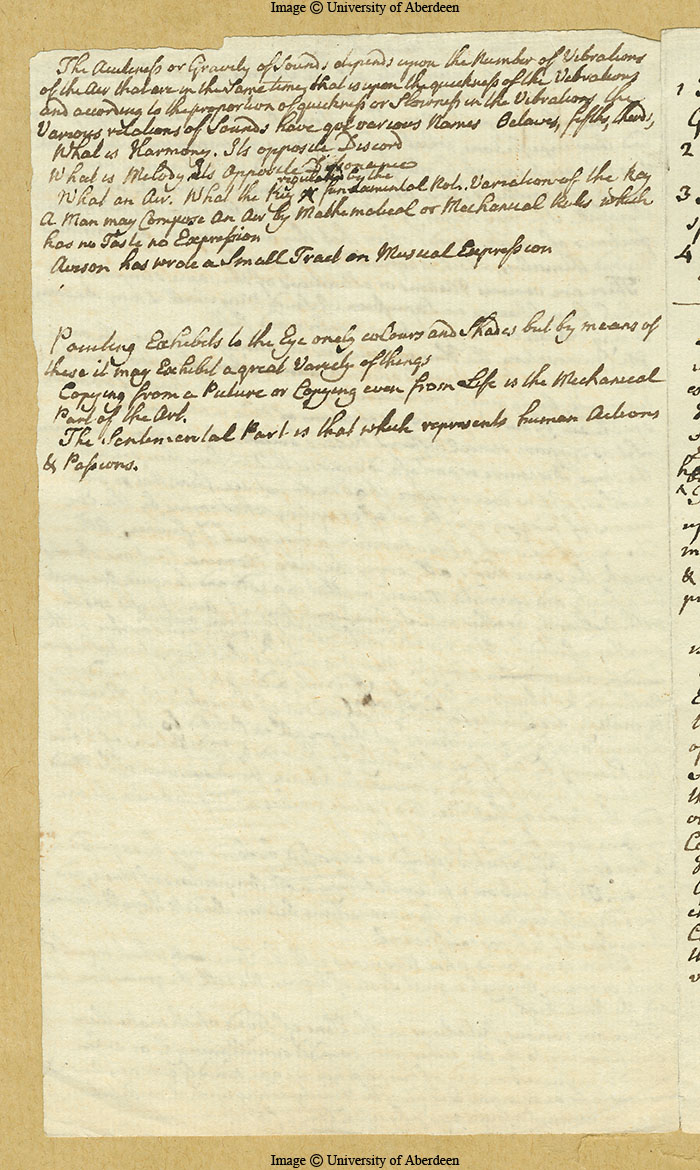 Image © University of Aberdeen
The Acuteness or Gravity of Sounds depends upon the Number of Vibrations
of the Air that are in the same time, that is upon the quickness of the Vibrations
and according to the proportion of quickness or Slowness in the Vibrations the
Various relations of Sounds have got various Names Octaves, fifths, thirds,
What is Harmony. Its opposite Discord
What is Melody Its Opposite
What an Air. What the Key regulated by the fundamental Not. Variation of the Key
A Man may Compose An Air by Mathematical or Mechanical Rules which
has no Taste no Expression
Avison has wrote a Small Tract on Musical Expression
Painting Exhibits to the Eye onely colours and Shades but by means of
these it may Exhibit a great Variety of things
Copying from a Picture or Copying even from Life is the Mechanical
Part of the Art.
The Sentimental Part is that which represents human Actions
& Passions.
1
2
3
4
Image © University of Aberdeen